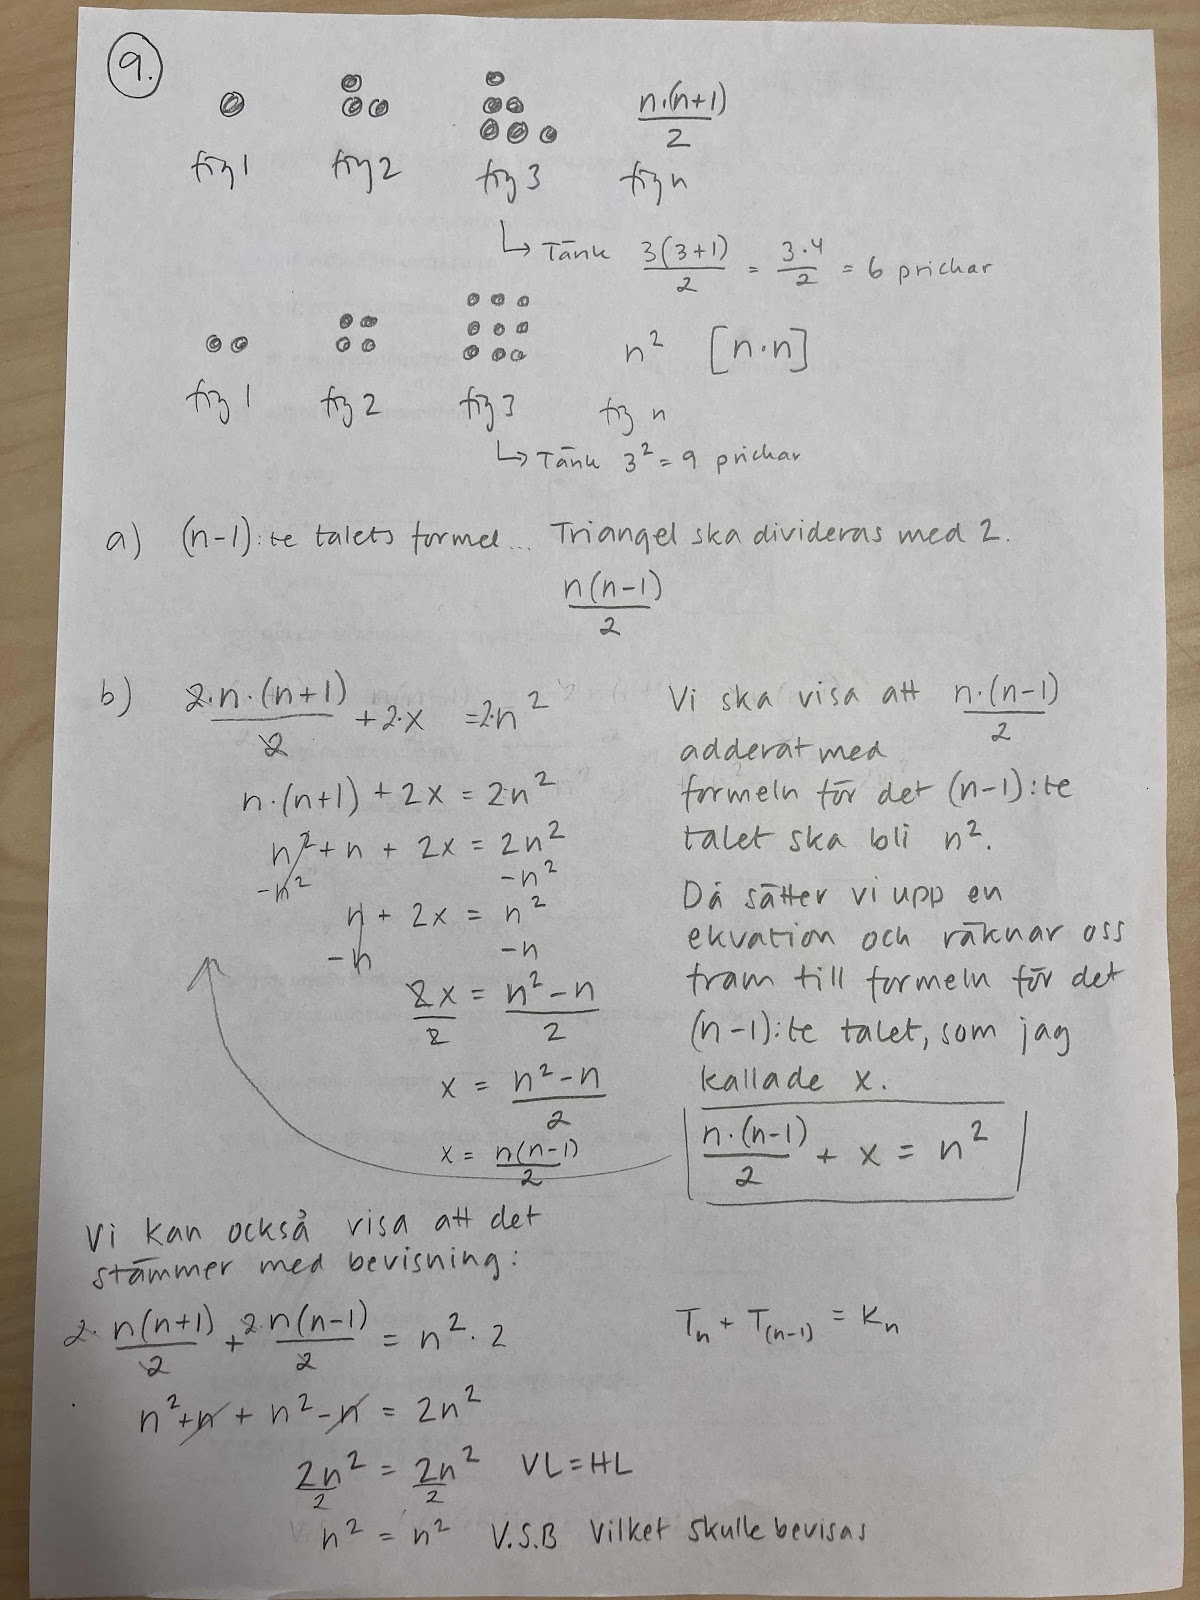 9.
n·(n+1)/2
fig 1 fig 2 fig 3 fig n
↳ Tänk 3(3+1)/2 = 3·4/2 = 6 prickar
n² [n·n]
fig 1 fig 2 fig 3 fig n
↳ Tänk 3² = 9 prickar
a) (n-1):te talets formel... Triangel ska divideras med 2.
n(n-1)/2
b) 2·n·(n+1)/2 + 2·x = 2·n²
n·(n+1) + 2x = 2n²
n² + n + 2x = 2n²
-n² -n²
n + 2x = n²
-n -n
2x/2 = n²-n/2
x = n²-n/2
x = n(n-1)/2
Vi ska visa att n·(n-1)/2
adderat med
formeln för det (n-1):te
talet ska bli n².
Då sätter vi upp en
ekvation och räknar oss
fram till formeln för det
(n-1):te talet, som jag
kallade x.
n·(n-1)/2 + x = n²
Vi kan också visa att det
stämmer med bevisning:
2· n(n+1)/2 + 2·n(n-1)/2 = n²·2
n²+n + n²-n = 2n²
2n²/2 = 2n²/2 VL=HL
n² = n² V.S.B Vilket skulle bevisas
Tn + T(n-1) = Kn